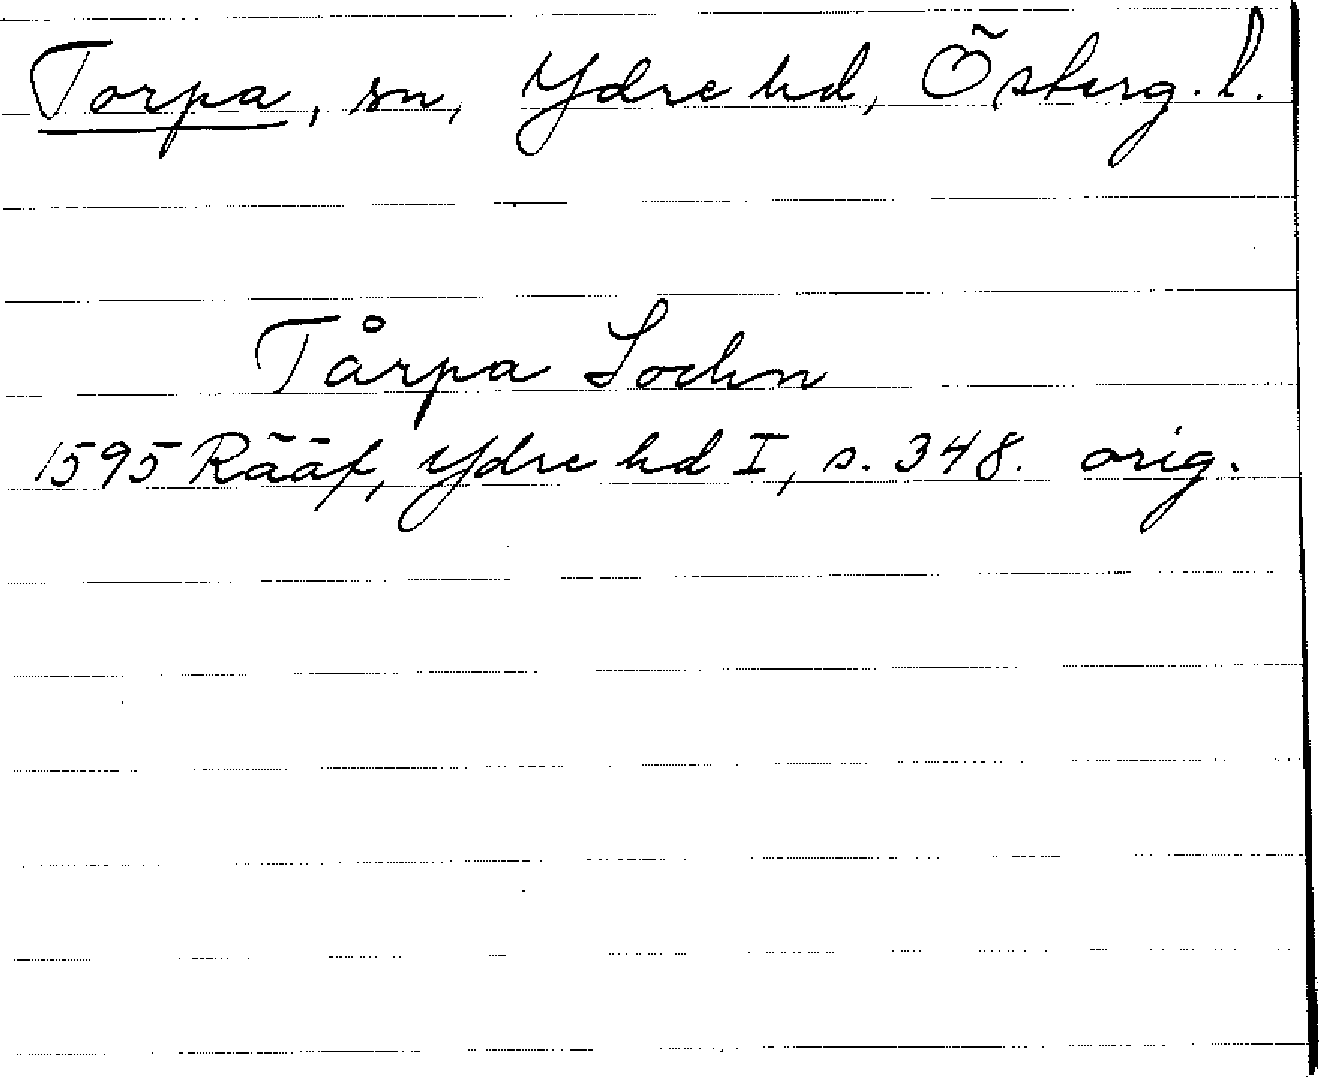 Torpa, sn, Ydre hd, Österg. l.
Tårpa Sochn
1595 Rääf, Ydre hd I, s. 348. orig.